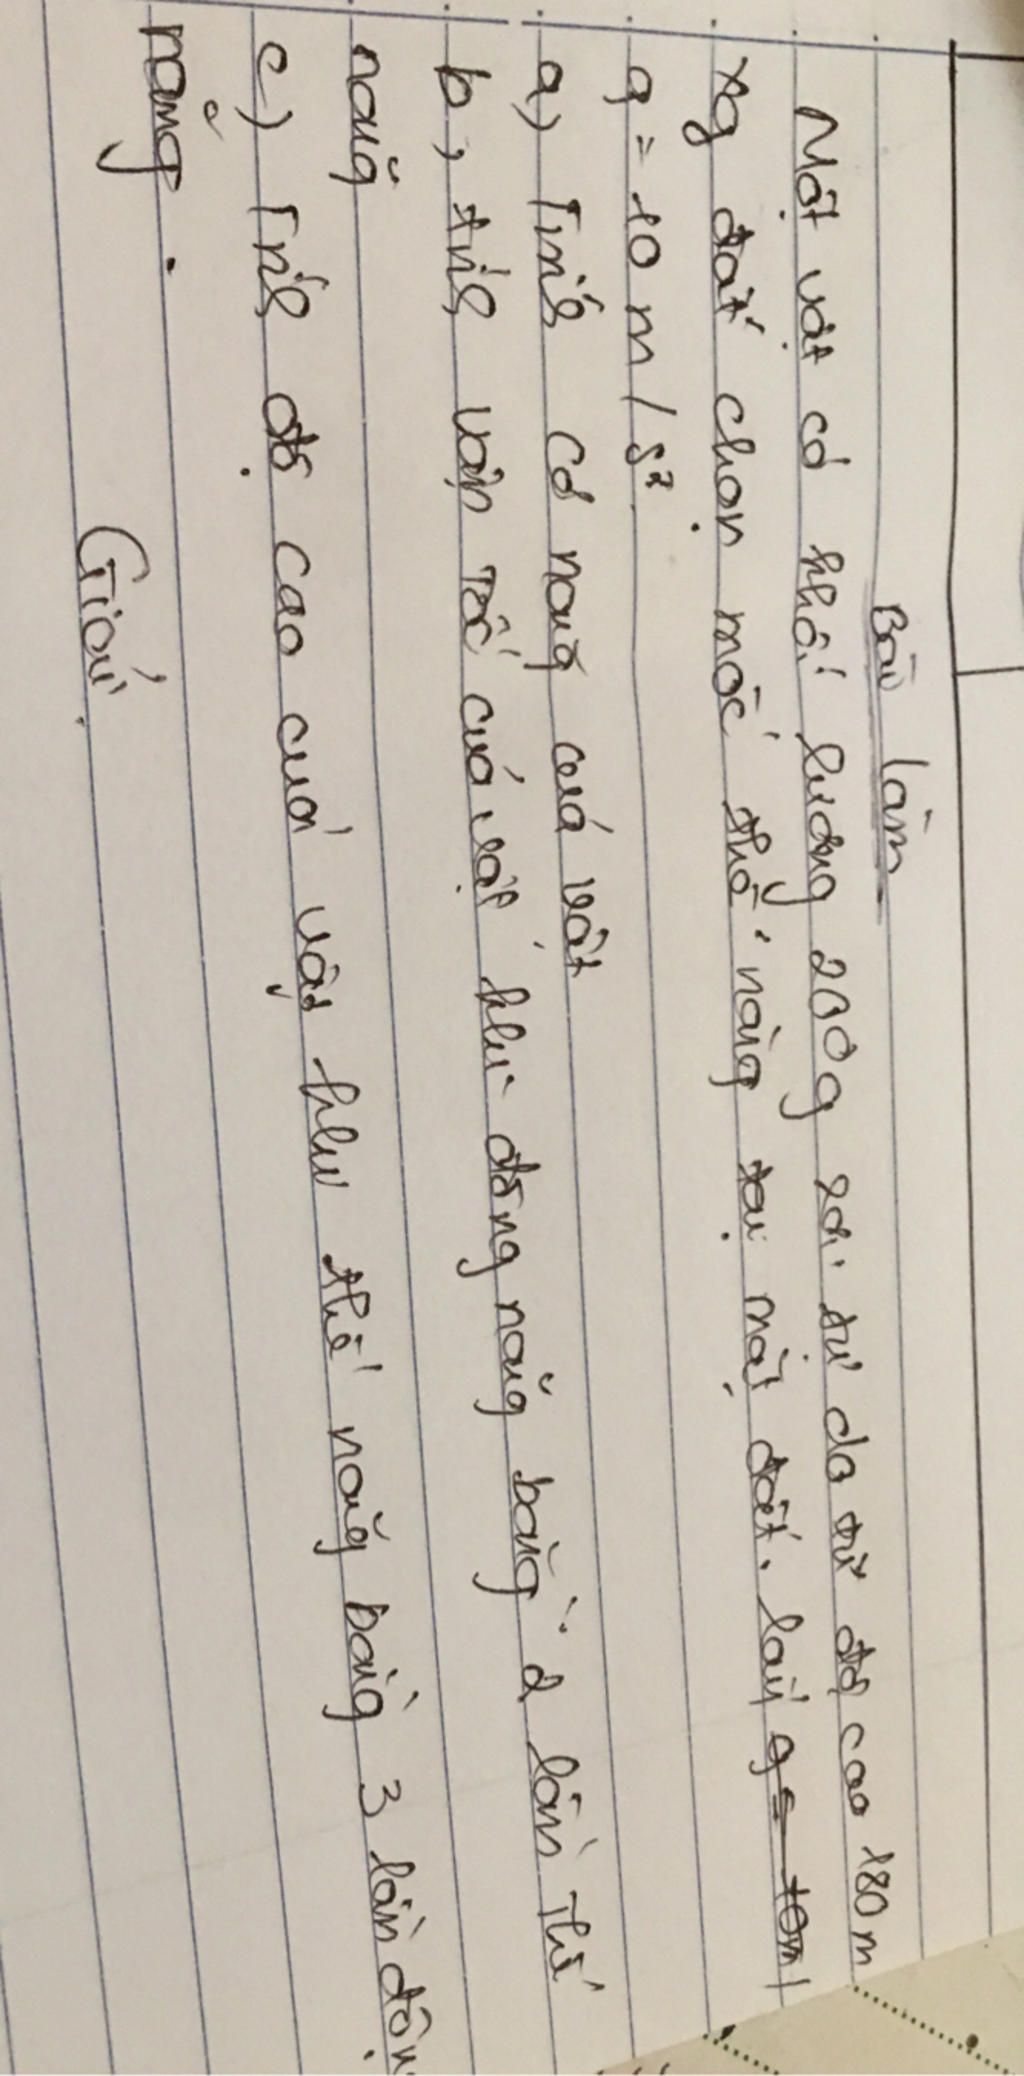 Bài làm
Một vật có khối lượng 200g rơi tự do từ độ cao 180m
xg đất chọn mốc thế năng tại mặt đất. lấy g = 10m/
g = 10 m/s²
a) Tính cơ năng cuả vật
b, tính vận tốc cuả vật khi động năng bằng 2 lần thế
năng
c) Tính độ cao cuả vật khi thế năng bằng 3 lần động
năng.
Giải